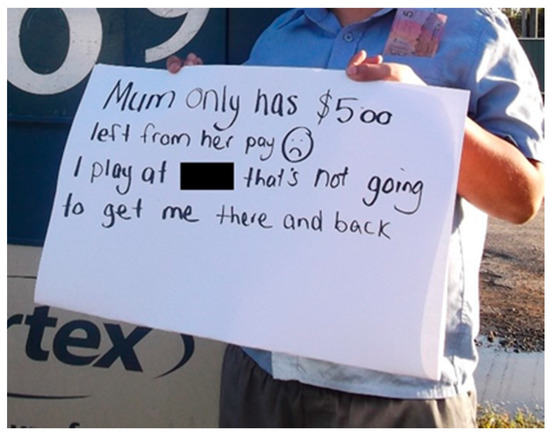 5
Mum only has $500
left from her pay
I play at that's not going
to get me there and back
rtex